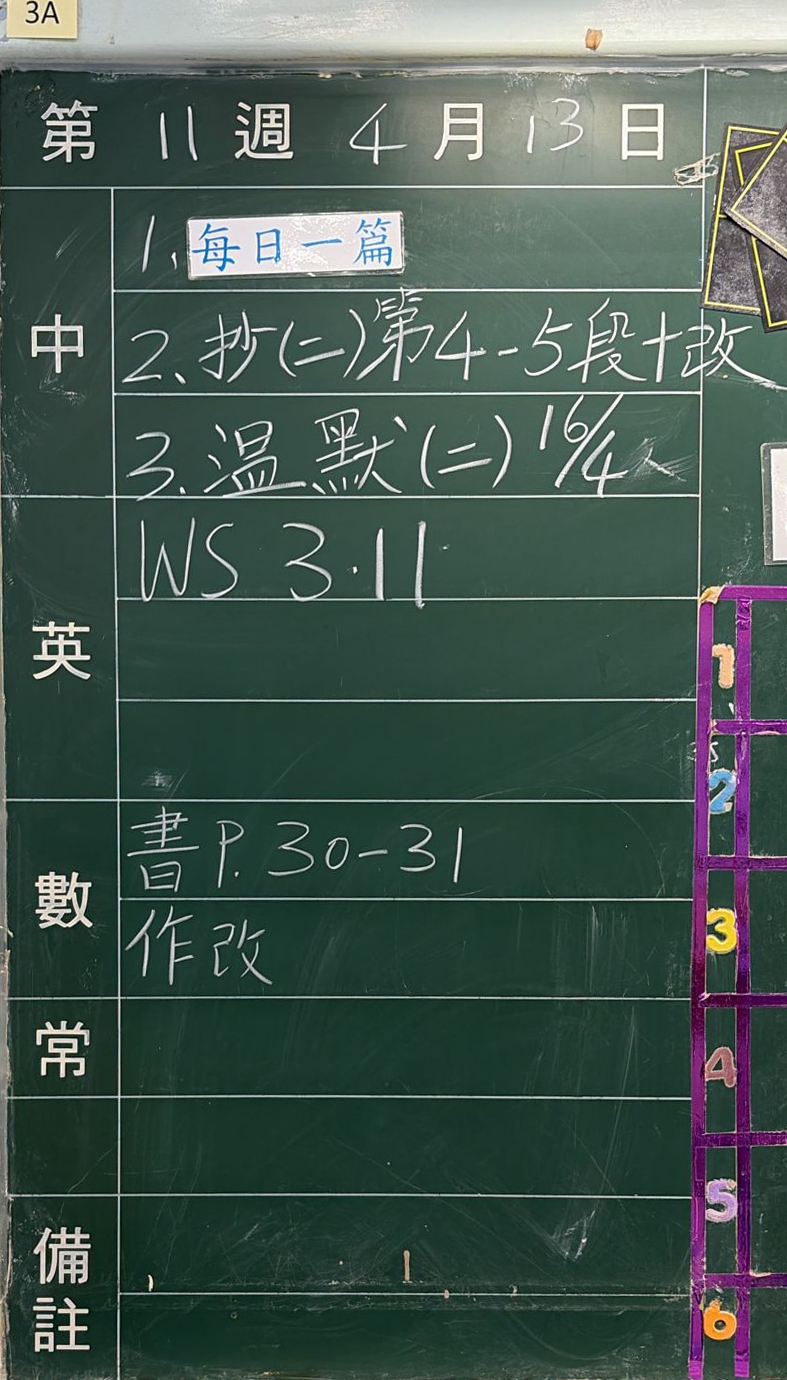 3A
第 11 週 4 月 13 日
中
1. 每日一篇
2. 抄(二)第4-5段+改
3. 溫默(二) 16/4
英
WS 3.11
數
書P.30-31
作改
常
備註
1
2
3
4
5
6